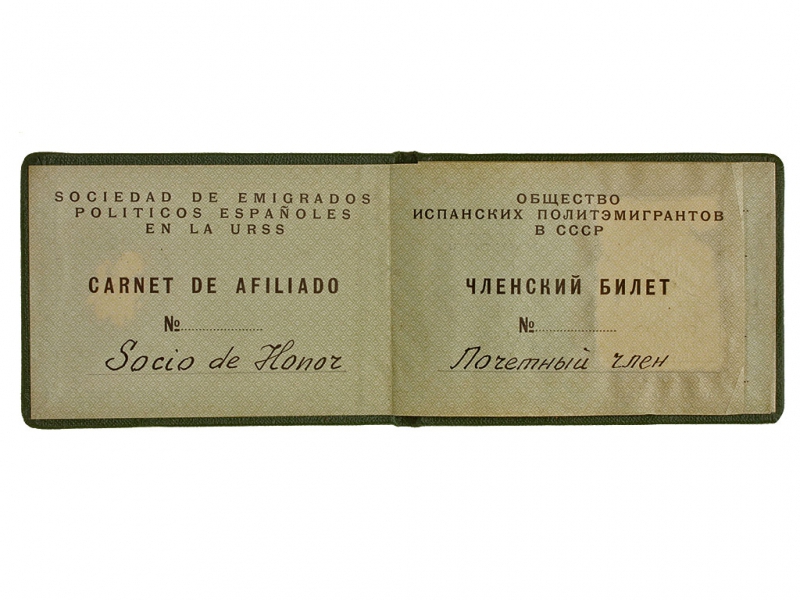 SOCIEDAD DE EMIGRADOS
POLITICOS ESPAÑOLES
EN LA URSS
CARNET DE AFILIADO
№
Socio de Honor
ОБЩЕСТВО
ИСПАНСКИХ ПОЛИТЭМИГРАНТОВ
В СССР
ЧЛЕНСКИЙ БИЛЕТ
№
Почетный член